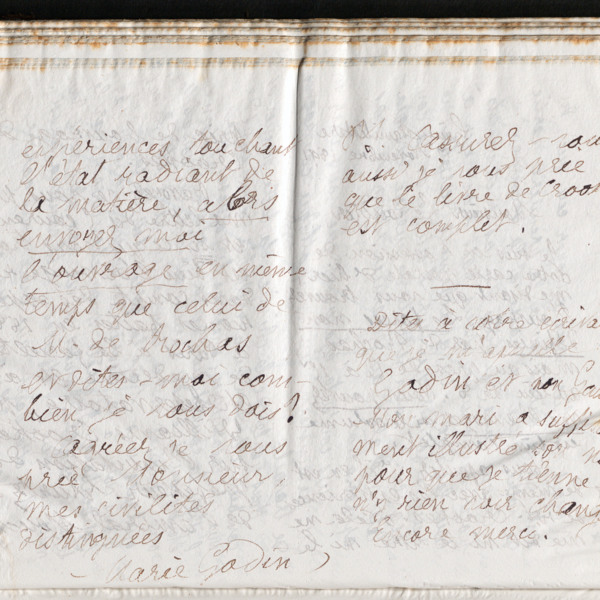 expériences touchant
l'état radiant de
la matière, alors
envoyez moi
l'ouvrage en même
temps que celui de
M. de Rochas
et dites-moi com-
bien je vous dois?
Agréez je vous
prie Monsieur,
mes civilités
distinguées
Marie Godin
assurez-vous
aussi je vous prie
que le livre de Croo
est complet.
Dites à votre écriva
que je m'appelle
Godin et non
Mon mari a suffi
ment illustré son
pour que je tienne
n'y rien voir chang
Encore merci.